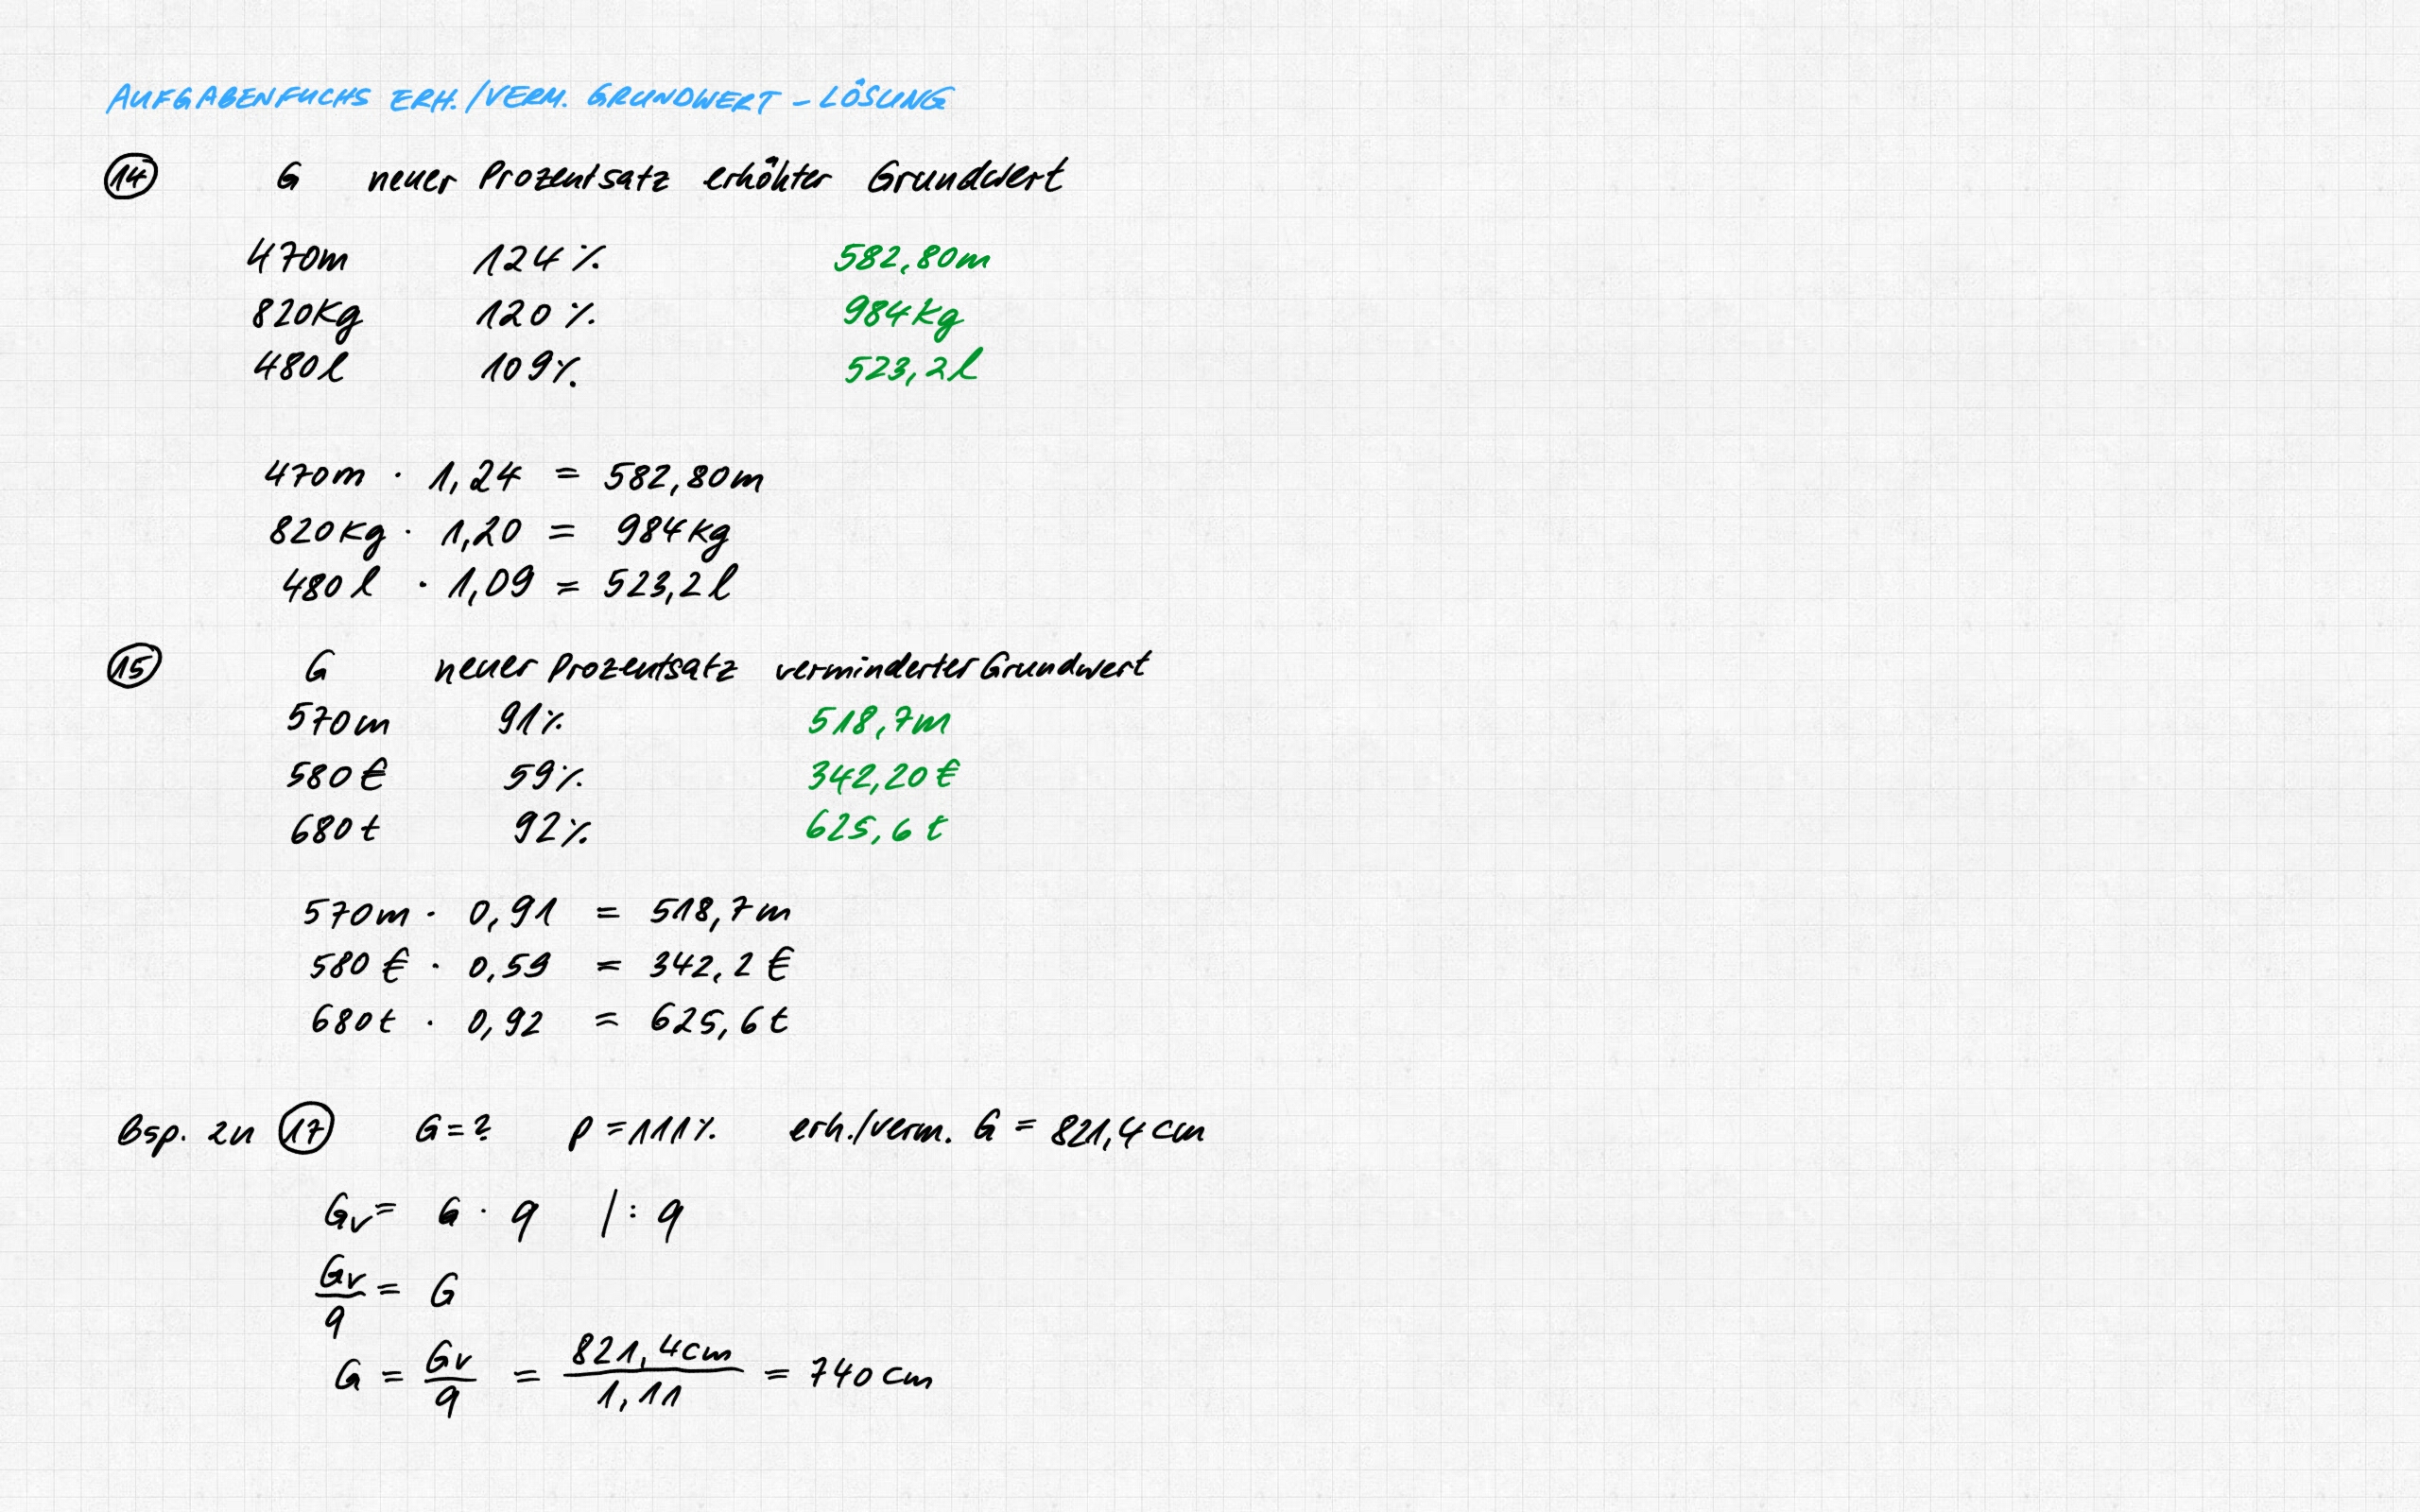 AUFGABENFUCHS ERH./VERM. GRUNDWERT – LÖSUNG
14 G neuer Prozentsatz erhöhter Grundwert
470m 124% 582,80m
820kg 120% 984kg
480l 109% 523,2l
470m · 1,24 = 582,80m
820kg · 1,20 = 984kg
480l · 1,09 = 523,2l
15 G neuer Prozentsatz verminderter Grundwert
570m 91% 518,7m
580€ 59% 342,20€
680t 92% 625,6t
570m · 0,91 = 518,7m
580€ · 0,59 = 342,2€
680t · 0,92 = 625,6t
Bsp. zu 17 G=? p=111% erh./verm. G = 821,4cm
Gv = G · q |: q
Gv/q = G
G = Gv/q = 821,4cm/1,11 = 740cm